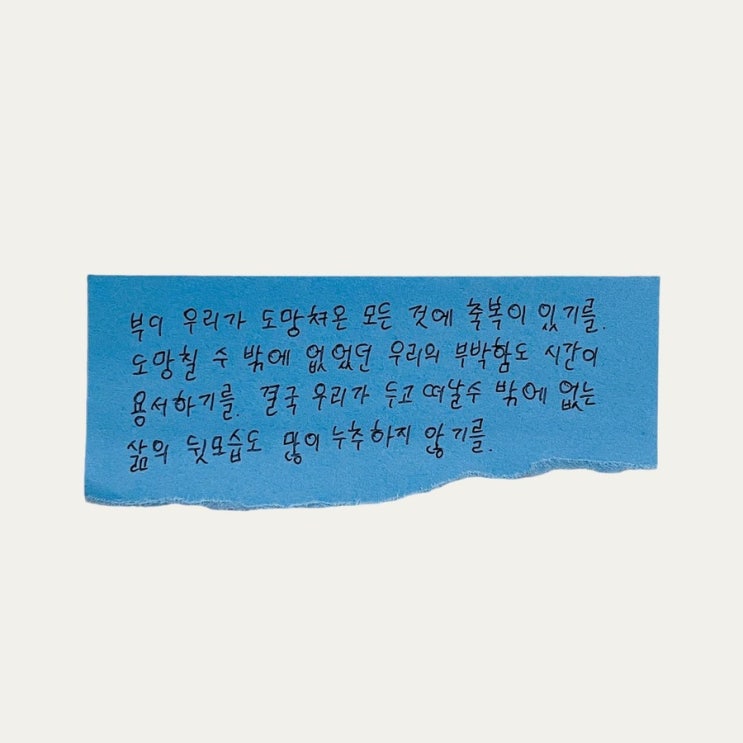 부디 우리가 도망쳐온 모든 것에 축복이 있기를.
도망칠 수 밖에 없었던 우리의 부박함도 시간이
용서하기를. 결국 우리가 두고 떠날수 밖에 없는
삶의 뒷모습도 많이 누추하지 않기를.